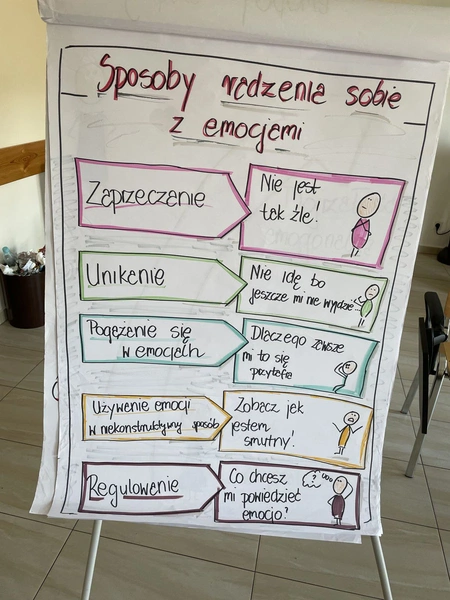 Sposoby radzenia sobie
z emocjami
Zaprzeczanie
Nie jest
tak źle!
Unikanie
Nie idę bo
jeszcze mi nie wyjdzie...
Pogrążenie się
w emocjach
Dlaczego zawsze
mi to się
przytrafia
Używanie emocji
w niekonstruktywny sposób
Zobacz jak
jestem
smutny!
Regulowanie
Co chcesz
mi powiedzieć
emocjo?